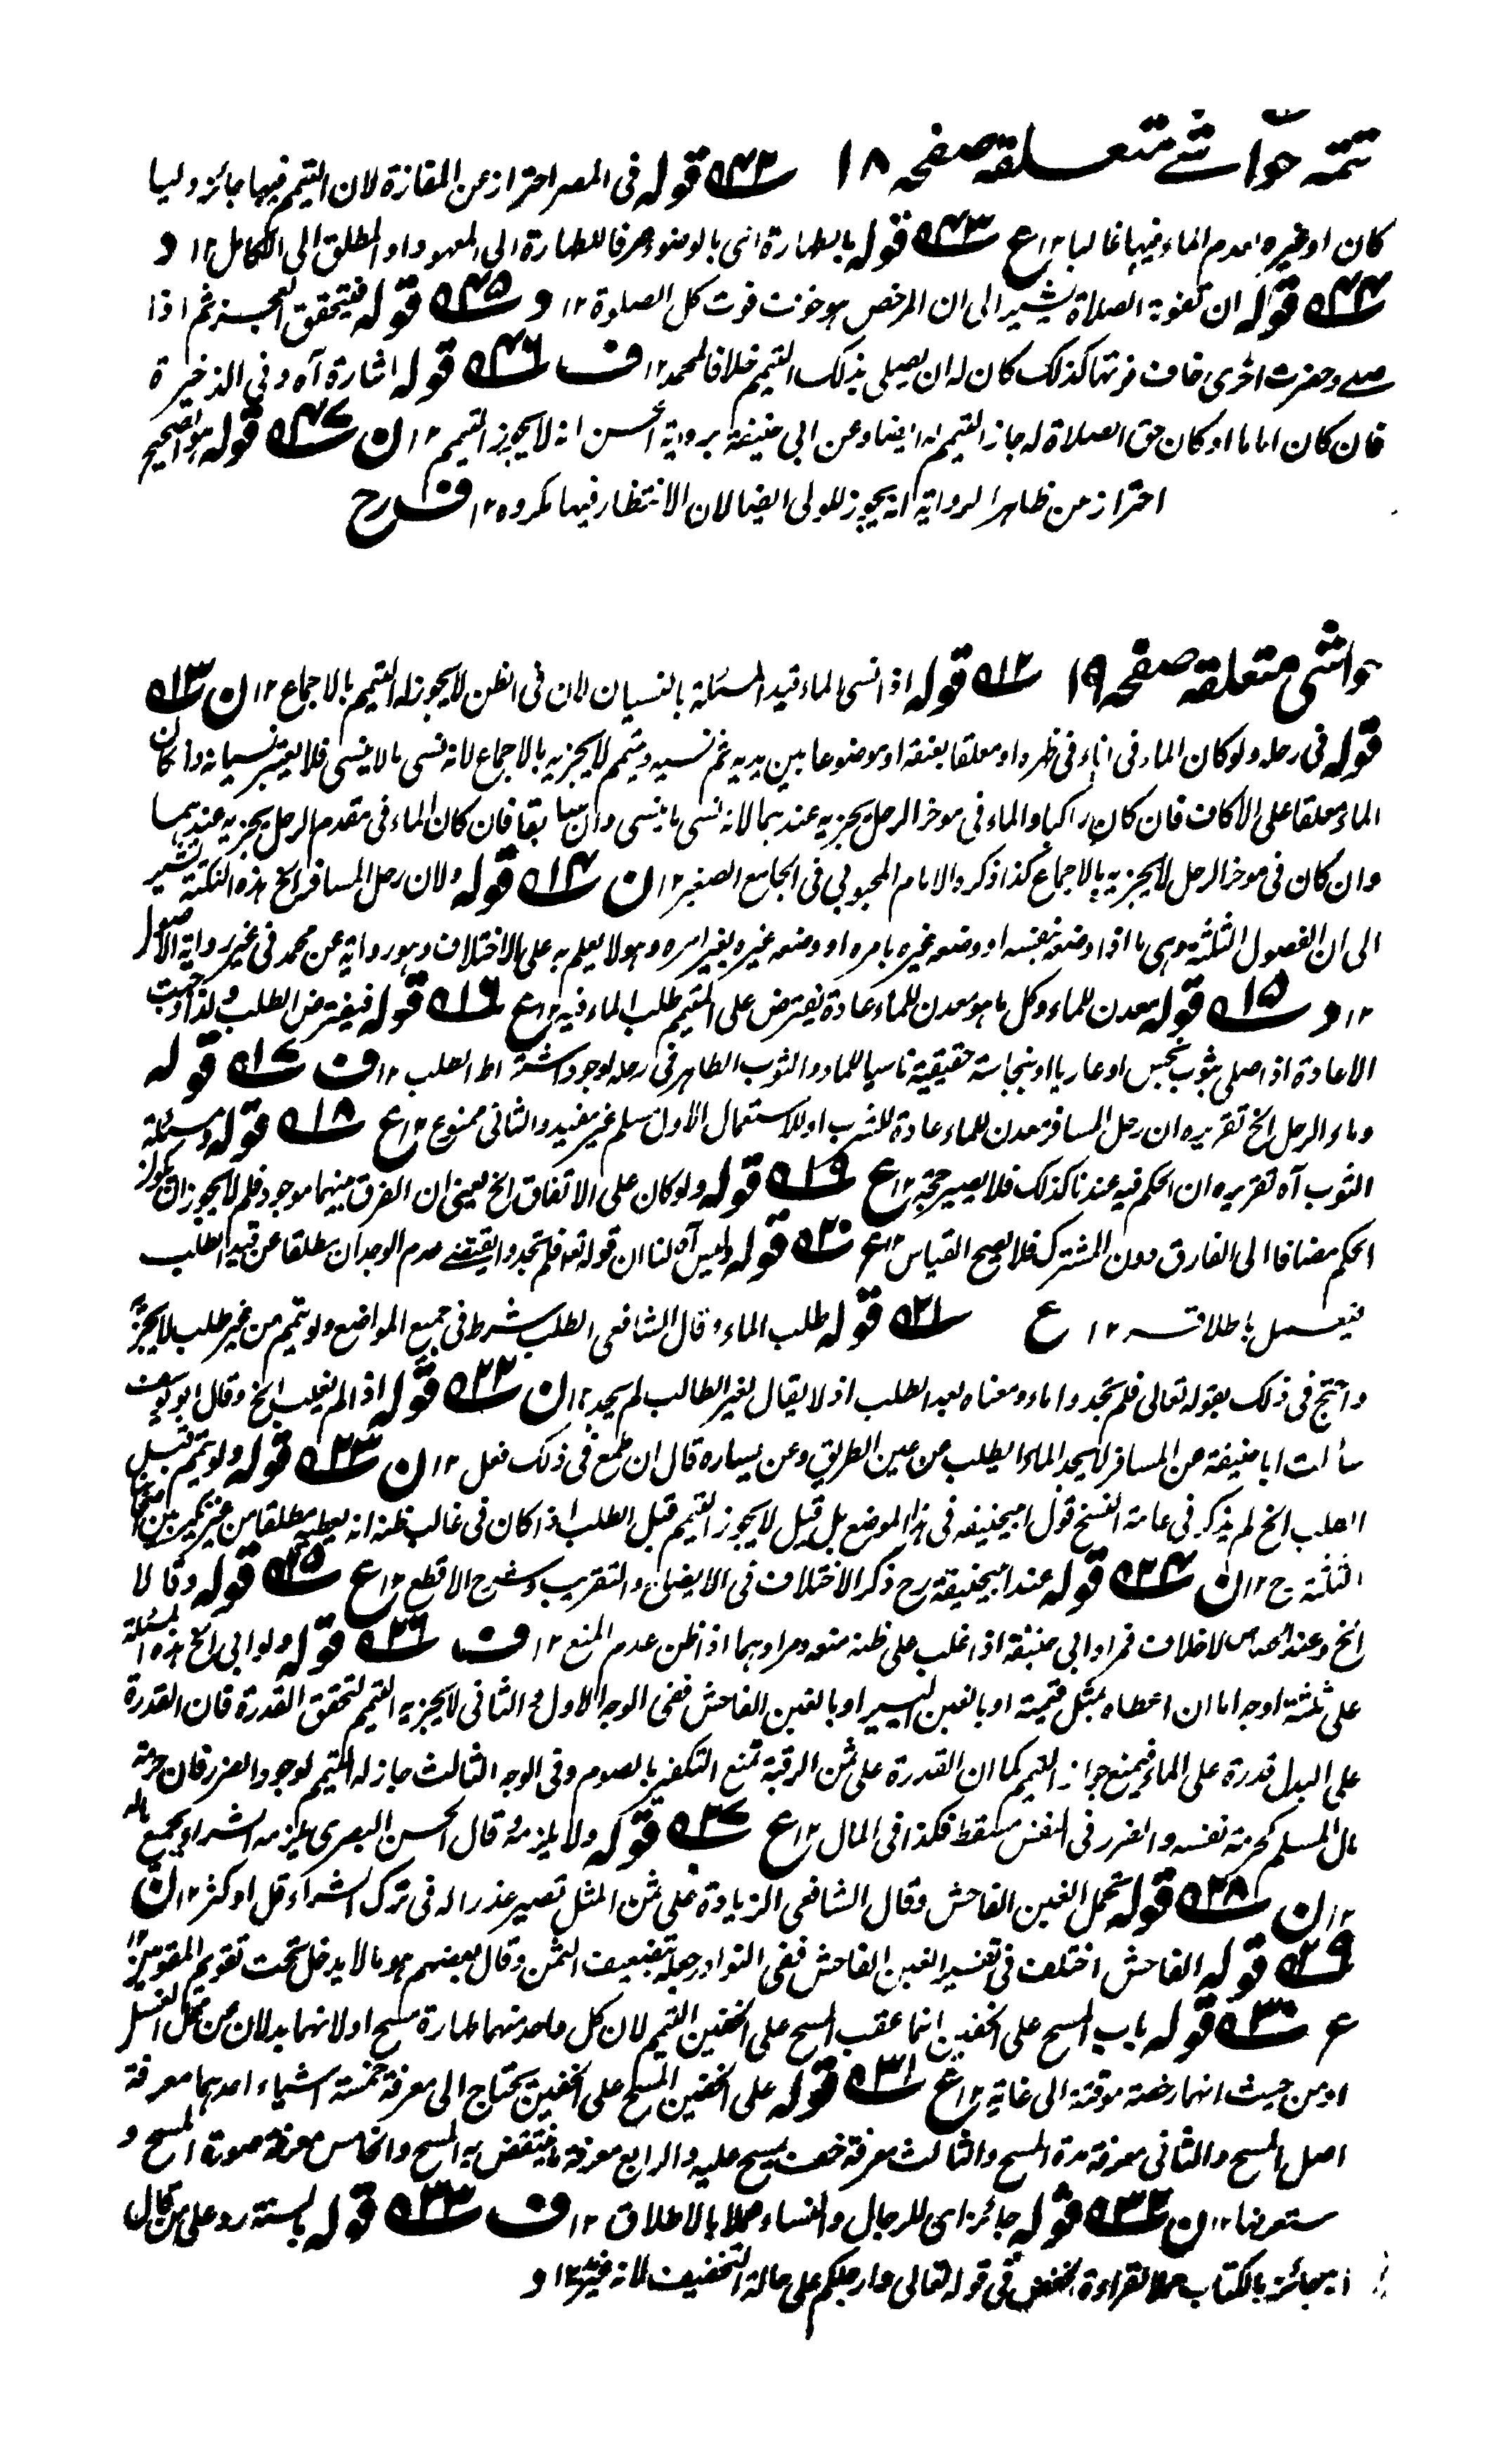 تتمہ حواشے متعلقہ صفحہ ۱۸ ۴۲ قولہ فی المصر احتراز عن المفازة لان التیمم فیہا جائز ولیا
کان او غیرہ لعدم الماء فیہا غالبا ۱۲ ع ۴۳ قولہ بالطہارة ای بالوضوء صرفا للطہارة الی المعہود او المطلق الی الکامل ۱۲ د
۴۴ قولہ ان تفوتہ الصلاة یشیر الی ان المرخص ہو خوف فوت کل الصلوة ۱۲ د ۴۵ قولہ فیتحقق العجز ثم اذا
صلے وحضرت اخری خاف فوتہا کذلک کان لہ ان یصلی بذلک التیمم خلافا لمحمد ۱۲ ف ۴۶ قولہ اشارة آہ وفی الذخیرة
فان کان اماما او کان حق الصلاة لہ جاز التیمم لہ ایضا وعن ابی حنیفة بروایة الحسن انہ لا یجوز التیمم ۱۲ ن ۴۷ قولہ ہو الصحیح
احتراز من ظاہر الروایة انہ یجوز للولی ایضا لان الانتظار فیہا مکروہ ۱۲ ف رح
حواشی متعلقہ صفحہ ۱۹ ۱۲ قولہ اذا نسی الماء قید المسئلة بالنسیان لان فی الظن لا یجوز لہ التیمم بالاجماع ۱۲ ن ۱۳
قولہ فی رحلہ ولو کان الماء فی اناء فی ظہرہ او معلقا بعنقہ او موضوعا بین یدیہ ثم نسیہ وتیمم لا یجزیہ بالاجماع لانہ نسی ما لا ینسی فلا یعتبر نسیانہ وان کان
الماء معلقا علی الاکاف فان کان راکبا والماء فی موخر الرحل یجزیہ عندہما لانہ نسی ما ینسی وان سابقا فان کان الماء فی مقدم الرحل یجزیہ عندہما
وان کان فی موخر الرحل لا یجزیہ بالاجماع کذا ذکرہ الامام المحبوبی فی الجامع الصغیر ۱۲ ن ۱۴ قولہ ولان رحل المسافر الخ ہذہ النکتة تشیر
الی ان الفصول الثلثة وہی ما اذا وضعہ بنفسہ او وضعہ غیرہ بامرہ او وضعہ غیرہ بغیر امرہ وہو لا یعلم بہ علی الاختلاف وہو روایة عن محمد فی غیر روایة الاصول
۱۲ د ۱۵ قولہ معدن للماء وکل ما ہو معدن للماء عادة یفترض علی المتیمم طلب الماء فیہ ۱۲ ع ۱۶ قولہ فیفترض الطلب ولذا وجبت
الاعادة اذا صلی بثوب نجس او عاریا او بنجاسة حقیقیة ناسیا للماء والثوب الطاہر فی رحلہ لوجود اشتراط الطلب ۱۲ ف ۱۷ قولہ
وماء الرحل الخ تقریرہ ان رحل المسافر معدن للماء عادة للشرب او للاستعمال الاول مسلم غیر مفید والثانی ممنوع ۱۲ ع ۱۸ قولہ ومسئلة
الثوب آہ تقریرہ ان الحکم فیہ عندنا کذلک فلا یصیر حجة ۱۲ ع ۱۹ قولہ ولو کان علی الاتفاق الخ یعنی ان الفرق بینہما موجود فلم لا یجوز ان یکون
الحکم مضافا الی الفارق دون المشترک فلا یصح القیاس ۱۲ ع ۲۰ قولہ ولیس آہ لنا ان قولہ تعہ فلم تجدوا یقتضے عدم الوجدان مطلقا عن قید الطلب
فیعمل باطلاقہ ۱۲ ع ۲۱ قولہ طلب الماء وقال الشافعی الطلب شرط فی جمیع المواضع ولو تیمم من غیر طلب لا یجزیہ
واحتج فی ذلک بقولہ تعالی فلم تجدوا ماء ومعناہ بعد الطلب اذ لا یقال لغیر الطالب لم یجد ۱۲ ن ۲۲ قولہ اذا لم یغلب الخ وقال ابو یوسف
سألت ابا حنیفة عن المسافر لا یجد الماء ا یطلب عن یمین الطریق وعن یسارہ قال ان طمع فی ذلک فعل ۱۲ ن ۲۳ قولہ ولو تیمم قبل
الطلب الخ لم یذکر فی عامة النسخ قول ابیحنیفہ فی ہذا الموضع بل قیل لا یجوز التیمم قبل الطلب اذا کان فی غالب ظنہ انہ یعطیہ مطلقا من غیر ذکر بین اصحابنا
الثلثة رح ۱۲ ن ۲۴ قولہ عند ابیحنیفة رح ذکر الاختلاف فی الایضاح والتقریب وشرح الاقطع ۱۲ ع ۲۵ قولہ وقالا
الخ وعند الجصاص لا خلاف فمراد ابی حنیفة اذا غلب علی ظنہ منعہ ومرادہما اذا ظن عدم المنع ۱۲ ف ۲۶ قولہ ولو ابی الخ ہذہ المسئلة
علی ثلثة اوجہ اما ان اعطاہ بمثل قیمتہ او بالغبن الیسیر او بالغبن الفاحش ففی الوجہ الاول والثانی لا یجزیہ التیمم لتحقق القدرة فان القدرة
علی البدل قدرة علی الماء فیمنع جواز التیمم کما ان القدرة علی ثمن الرقبة تمنع التکفیر بالصوم وفی الوجہ الثالث جاز لہ التیمم لوجود الضرر فان حرمة
مال المسلم کحرمة نفسہ والضرر فی النفس مسقط فکذا فی المال ۱۲ ع ۲۷ قولہ ولا یلزمہ وقال الحسن البصری یلزمہ الشراء بجمیع مالہ
۱۲ ن ۲۸ قولہ تحمل الغبن الفاحش وقال الشافعی الزیادة علی ثمن المثل تصیر عذرا لہ فی ترک الشراء قل او کثر ۱۲ ن
۲۹ قولہ الفاحش اختلف فی تفسیر الغبن الفاحش ففی النوادر جعلہ تبضعیف الثمن وقال بعضہم ہو ما لا یدخل تحت تقویم المقومین ۱۲
ع ۳۰ قولہ باب المسح علی الخفین انما عقب المسح علی الخفین التیمم لان کل واحد منہما طہارة مسح او لانہما بدلان عن الغسل
او من حیث انہما رخصة موقتة الی غایة ۱۲ ع ۳۱ قولہ علی الخفین المسح علی الخفین یحتاج الی معرفة خمسة اشیاء احدہما معرفة
اصل المسح والثانی معرفة مدة المسح والثالث معرفة خف یمسح علیہ والرابع معرفة ما ینتقض بہ المسح والخامس معرفة صورة المسح و
ستعرفہا ۱۲ ن ۳۲ قولہ جائز ای للرجال والنساء عملا بالاطلاق ۱۲ ف ۳۳ قولہ بالسنة رد علی من قال
انہ جائز بالکتاب عملا لقراءة الخفض فی قولہ تعالی وارجلکم علی حالة التخفیف لانہ غیر ۱۲ د